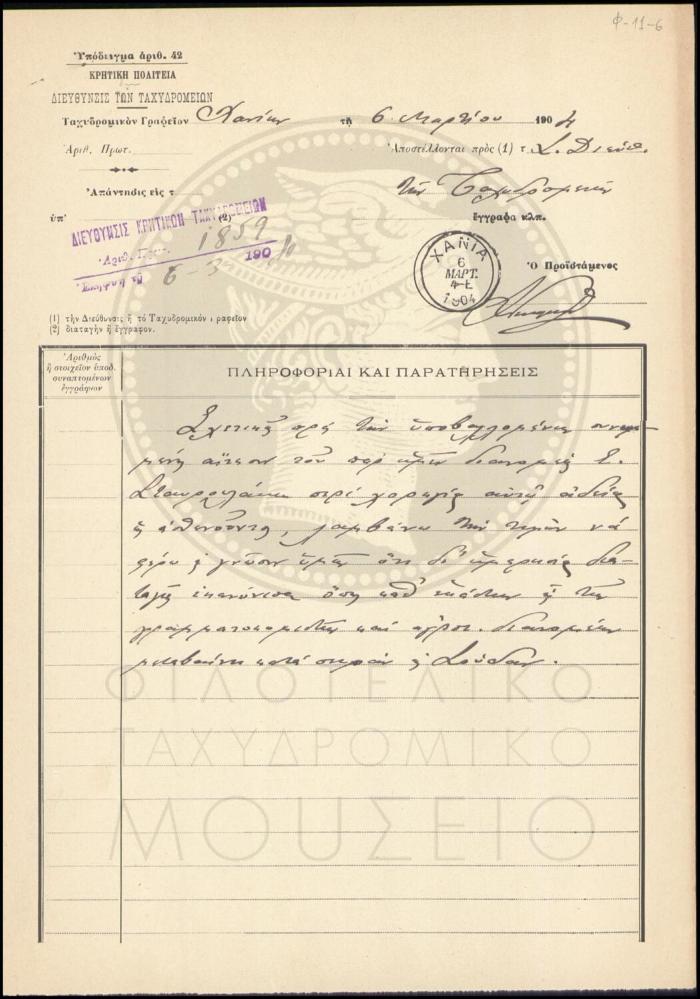 Φ-11-6
Ὑπόδειγμα ἀριθ. 42
ΚΡΗΤΙΚΗ ΠΟΛΙΤΕΙΑ
ΔΙΕΥΘΥΝΣΙΣ ΤΩΝ ΤΑΧΥΔΡΟΜΕΙΩΝ
Ταχυδρομικὸν Γραφεῖον Χανίων τῇ 6 Μαρτίου 1904
Ἀριθ. Πρωτ.
Ἀποστέλλονται πρὸς (1) τ. Σ. Διεύθ.
Ἀπάντησις εἰς τ
τῶν Ταχυδρομείων
ὑπ' (2)
ἔγγραφα κλπ.
ΔΙΕΥΘΥΝΣΙΣ ΚΡΗΤΙΚΩΝ ΤΑΧΥΔΡΟΜΕΙΩΝ
Ἀριθ. Πρωτ. 1859
6-3 1904
ΧΑΝΙΑ
6
ΜΑΡΤ.
4-Ε
1904
Ὁ Προϊστάμενος
(1) τὴν Διεύθυνσιν ἢ τὸ Ταχυδρομικὸν γραφεῖον
(2) διαταγὴν ἢ ἔγγραφον.
Ἀριθμὸς
ἢ στοιχεῖον ὑποδ.
συναπτομένων
ἐγγράφων
ΠΛΗΡΟΦΟΡΙΑΙ ΚΑΙ ΠΑΡΑΤΗΡΗΣΕΙΣ
Σχετικῶς πρὸς τὴν ὑποβαλλομένην συνημ-
μένην αἴτησιν τοῦ παρ' ἡμῖν διανομέως Σ.
Σταυρουλάκη περὶ χορηγίας αὐτῷ ἀδείας
ἀσθενοῦντι, λαμβάνω τὴν τιμὴν νὰ
φέρω εἰς γνῶσιν ὑμῶν ὅτι δι' ἡμερησίας δια-
ταγῆς ἐκανόνισα ὅπως καθ' ἑκάστην εἷς τῶν
γραμματοκομιστῶν καὶ ἀγροτ. διανομέων
μεταβαίνῃ κατὰ σειρὰν εἰς Σούδαν.
ΦΙΛΟΤΕΛΙΚΟ
ΤΑΧΥΔΡΟΜΙΚΟ
ΜΟΥΣΕΙΟ